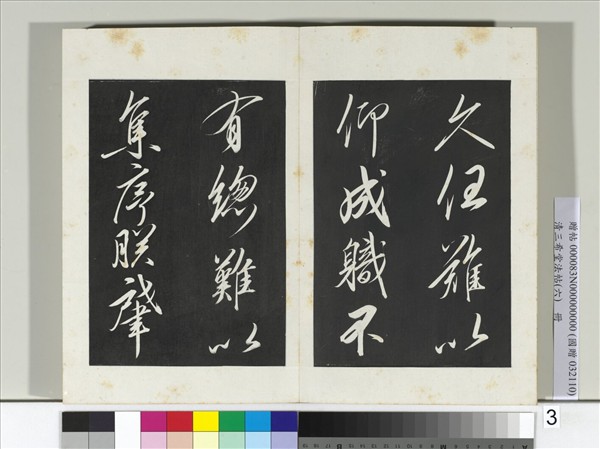 久任難以
仰成軄不
有總難以
集序朕肇
贈帖 000083N000000000 (國贈 032110)
清三希堂法帖(六) 冊
3